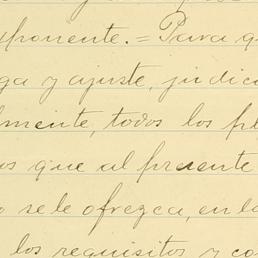 xponente.= Para q
ga y ajuste, judica
lmente, todos los pl
os que al presente
o se le ofrezca, en la
los requisitos y co